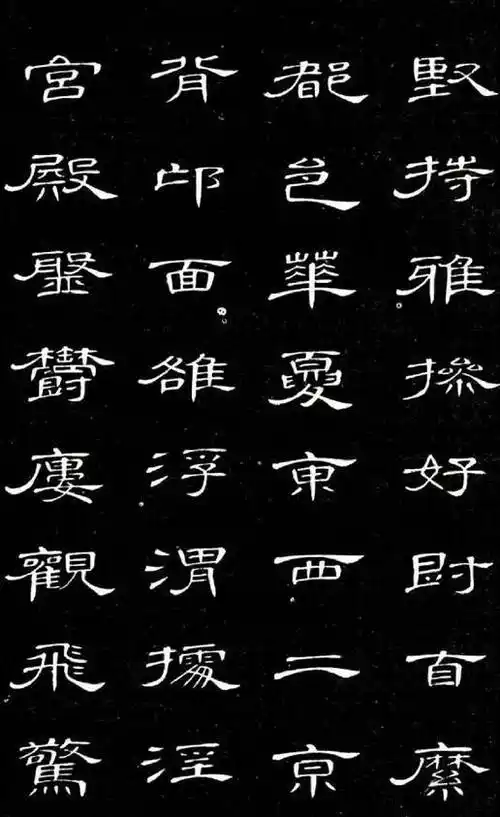 堅持雅操好爵自縻
都邑華夏東西二京
背邙面雒浮渭據涇
宮殿盤鬱廔觀飛驚